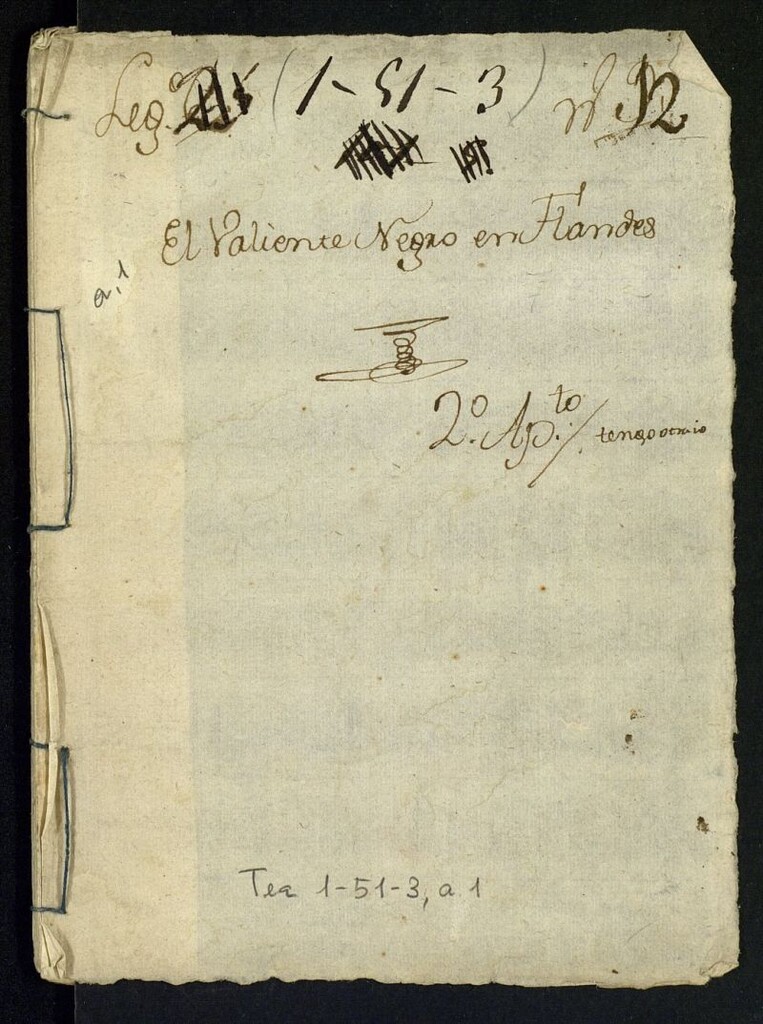 Leg.º (1-51-3) nº 12
El Valiente Negro en Flandes
a, 1
2.º Ap.to / tengo otro
Tea 1-51-3, a 1